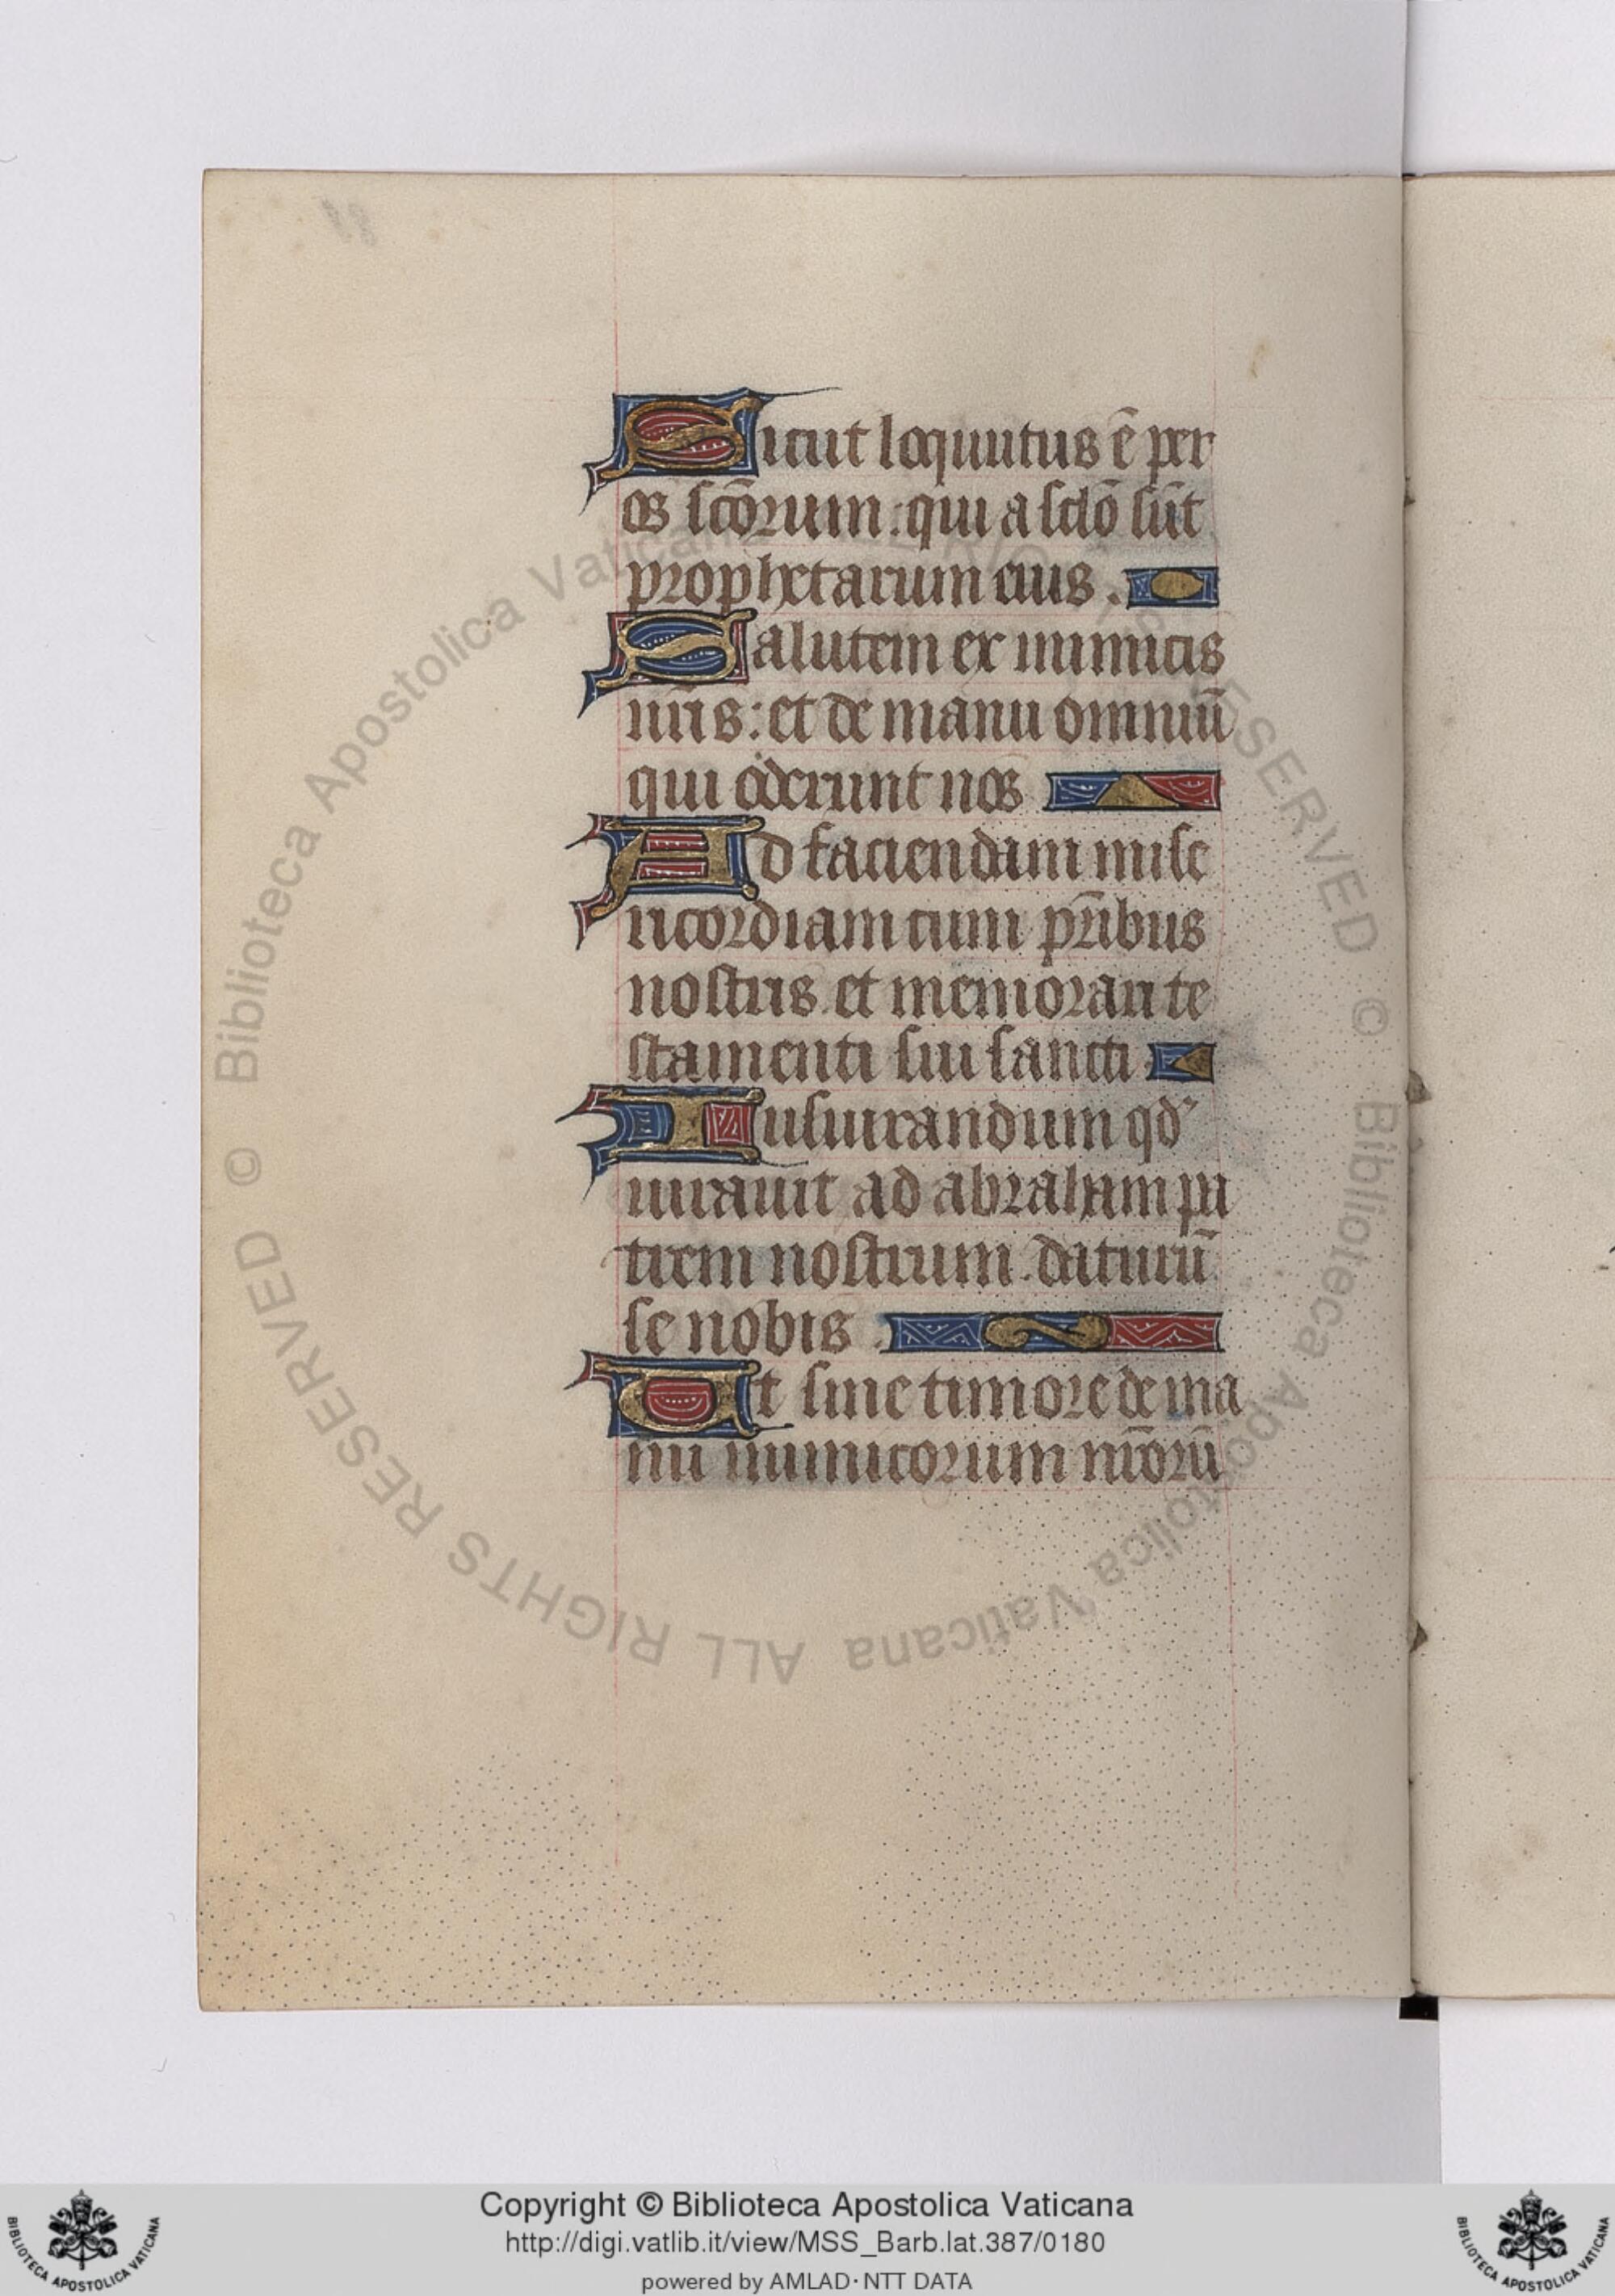 Sicut loquutus ē per
os sc̄orum : qui a sc̄lo sūt
prophetarum eius .
Salutem ex inimicis
nr̄is : et de manu omniū
qui oderunt nos
Ad faciendam mise
ricordiam cum pr̄ibus
nostris et memorari te
stamenti sui sancti
Iusiurandum qd'
iurauit ad abraham pa
trem nostrum . daturū
se nobis .
Ut sine timore de ma
nu inimicorum nr̄orū
© Biblioteca Apostolica Vaticana ALL RIGHTS RESERVED
© Biblioteca Apostolica Vaticana ALL RIGHTS RESERVED
Copyright © Biblioteca Apostolica Vaticana
http://digi.vatlib.it/view/MSS_Barb.lat.387/0180
powered by AMLAD · NTT DATA
BIBLIOTECA APOSTOLICA VATICANA
BIBLIOTECA APOSTOLICA VATICANA